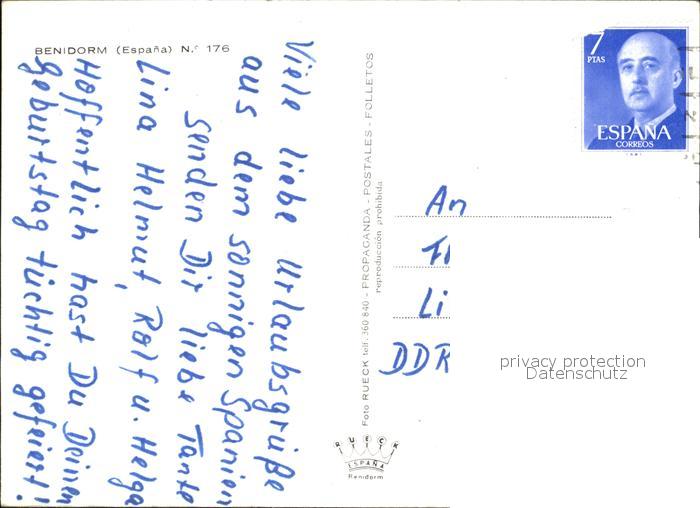 BENIDORM (España) N.º 176
Viele liebe Urlaubsgrüße
aus dem sonnigen Spanien
senden Dir liebe Tante
Lina Helmut, Rolf u. Helga
Hoffentlich hast Du Deinen
Geburtstag tüchtig gefeiert!
Foto RUECK telf. 360 840 - PROPAGANDA - POSTALES - FOLLETOS
reproducción prohibida
RUECK
ESPAÑA
Benidorm
7
PTAS
ESPAÑA
CORREOS
An
Li
DDR
privacy protection
Datenschutz